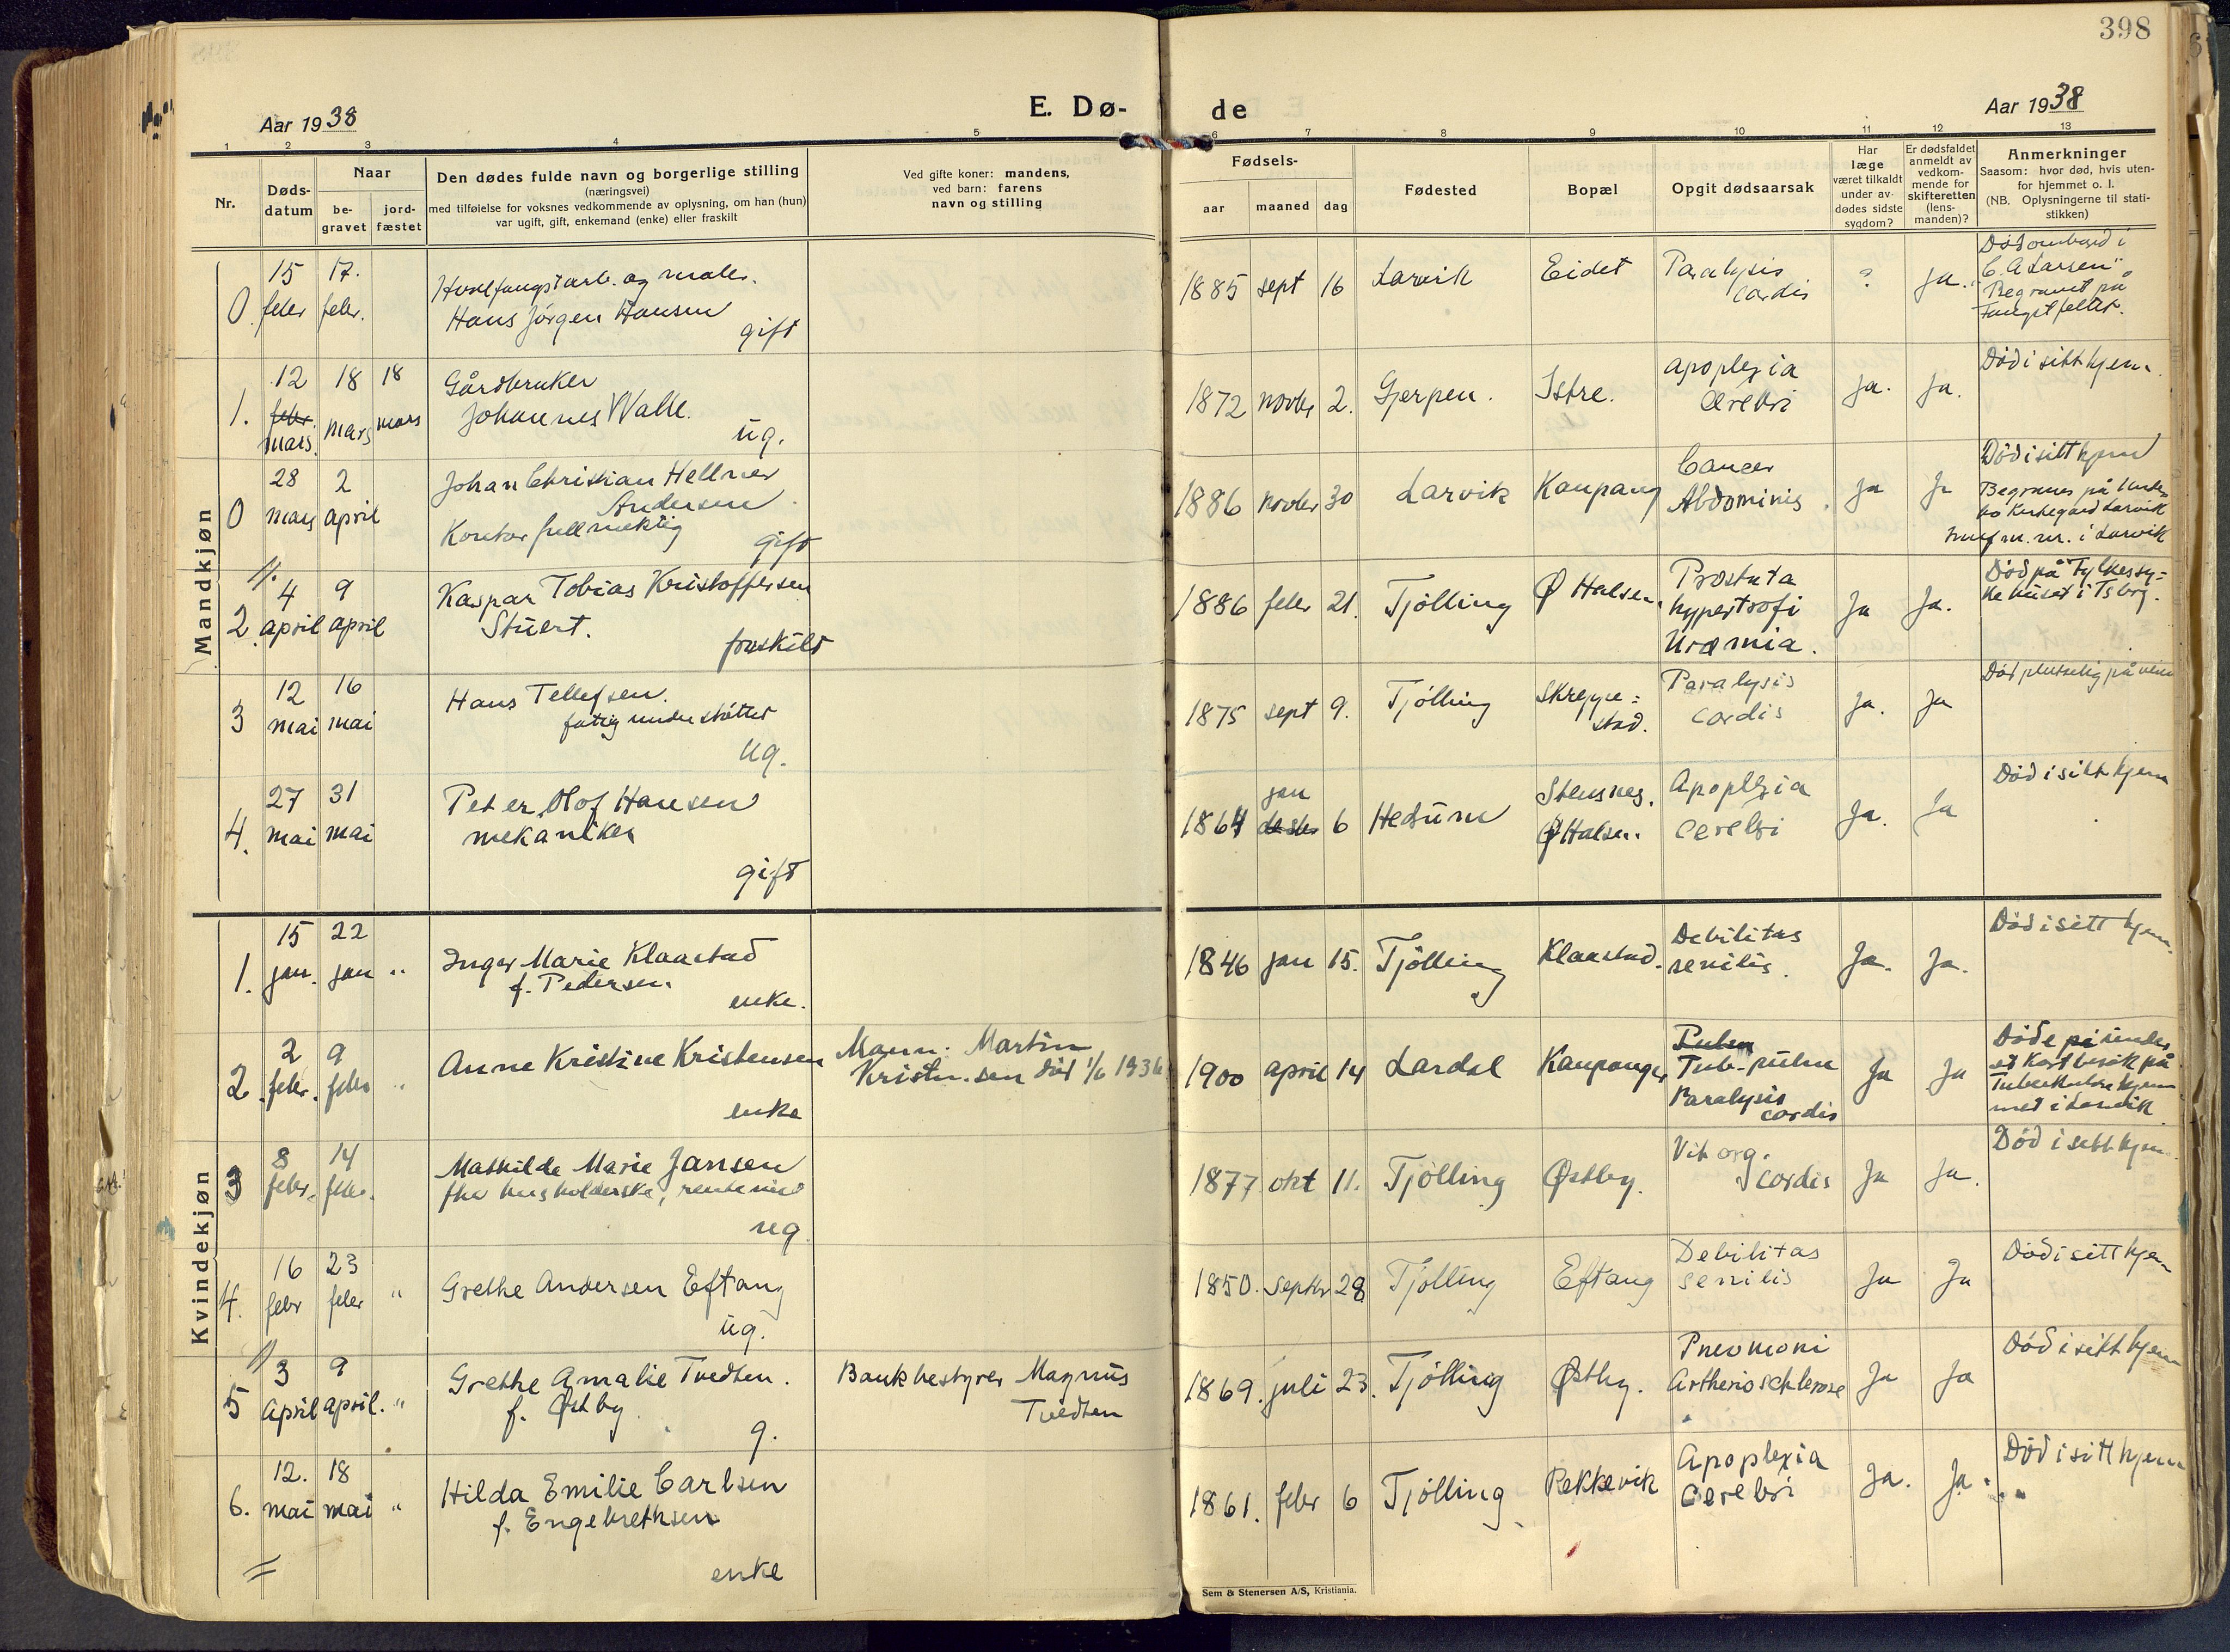 398
Aar 1938
E. Dø-
de
Aar 1938
1 2 3 4 5 6 7 8 9 10 11 12 13
Nr.
Døds-
datum
Naar
be-
gravet
jord-
fæstet
Den dødes fulde navn og borgerlige stilling
(næringsvei)
med tilføielse for voksnes vedkommende av oplysning, om han (hun)
var ugift, gift, enkemand (enke) eller fraskilt
Ved gifte koner: mandens,
ved barn: farens
navn og stilling
Fødsels-
aar
maaned
dag
Fødested
Bopæl
Opgit dødsaarsak
Har
læge
været tilkaldt
under av-
dødes sidste
sygdom?
Er dødsfaldet
anmeldt av
vedkom-
mende for
skifteretten
(lens-
manden)?
Anmerkninger
Saasom: hvor død, hvis uten-
for hjemmet o. l.
(NB. Oplysningerne til stati-
stikken)
Mandkjøn
0 15 febr 17. febr.
Hvalfangstarb. og maler.
Hans Jörgen Hansen
gift
1885 sept 16 Larvik Eidet Paralysis
cordis
? ja.
Död ombord i
"C. A Larsen"
Begravet på
Fangstfeltet.
1. 12 febr. mars. 18 mars 18 mars
Gårdbruker
Johannes Walle.
ug.
1872 novbr 2. Gjerpen. Istre. apoplexia
cerebri
ja. ja.
Död i sitt hjem.
0 28 mars 2 april
Johan Christian Hellner
Andersen
Kontorfullmektig
gift
1886 novbr 30 Larvik Kaupang Cancer
Abdominis.
ja ja
Död i sitt hjem
Begraves på
Kirkegård Larvik
m. nr. i Larvik
2. 4 april 9 april
Kaspar Tobias Kristoffersen
Stuert.
fraskilt
1886 febr 21. Tjölling Ø Halsen. Prostata
hypertrofi
Uræmia.
Ja Ja.
Död på Fylkessy=
kehuset i Tsbrg.
3 12 mai 16 mai
Hans Tellefsen.
fattigunderstöttet
ug.
1875 sept 9. Tjölling Skreppe=
stad.
Paralysis
cordis
Ja. Ja
Död plutselig på veien
4. 27 mai 31 mai
Peter Olof Hansen
mekaniker
gift
1864 jan desbr 6 Hedrum Stensnes.
Ø Halsen.
Apoplexia
cerebri
Ja. Ja
Död i sitt hjem
Kvindekjøn
1. 15 jan. 22 jan "
Inger Marie Klaastad
f. Pedersen.
enke.
1846 jan 15. Tjölling Klaastad. Debilitas
senilis.
Ja. Ja.
Död i sitt hjem.
2. 2 febr. 9 febr "
Anne Kristine Kristensen
enke
Mann: Martin
Kristensen död 1/6 1936
1900 april 14 Lardal Kaupanger Pulm
Tub. pulm
Paralysis
cordis
Ja Ja
Döde på under
et kort besök på
Tuberkulosehjem
met i Larvik
3 8 febr. 14 febr.
Mathilde Marie Jansen
fhv husholderske,
ug
1877 okt 11. Tjölling Østby. Vit org.
cordis
Ja Ja.
Död i sitt hjem
4. 16 febr 23 febr "
Grethe Andersen Eftang
ug.
1850. Septbr 28 Tjölling Eftang Debilitas
senilis
Ja Ja
Död i sitt hjem
5 3 April 9 april. "
Grethe Amalie Tvedten.
f. Østby
g.
Bankbestyrer Magnus
Tvedten
1869. juli 23. Tjölling Østby. Pneumoni
Artherioschlerose
Ja Ja
Död i sitt hjem
6. 12. mai 18 mai "
Hilda Emilie Carlsen
f. Engebrethsen
enke
1861. febr 6 Tjölling Rekkevik Apoplexia
cerebri
Ja. Ja.
Död i sitt hjem
Sem & Stenersen A/S, Kristiania.